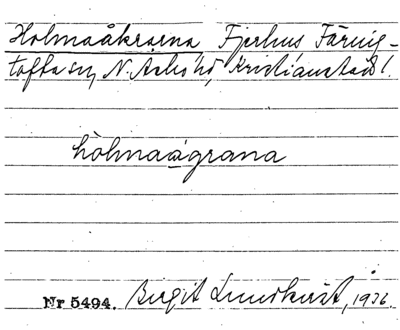 Holmaåkrarna Fjerhus Färing-
tofta sn, N. Åsbo hd, Kristianstads l.
hòlmaágrana
Nr 5494. Birgit Lundkvist, 1926.